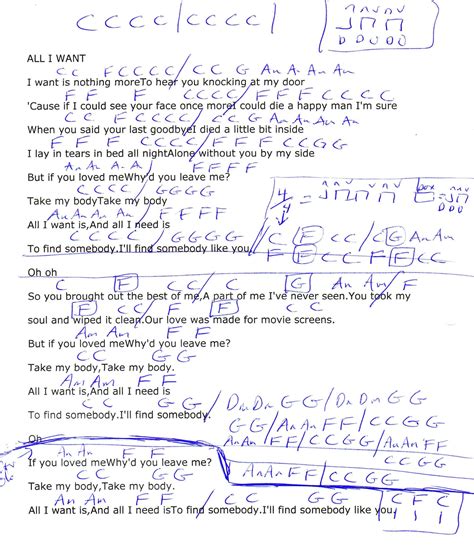 C C C C / C C C C /
ALL I WANT
C C F C C C C / C C G Am Am Am Am
I want is nothing moreTo hear you knocking at my door
F F F C C C C / F F F C C C C
'Cause if I could see your face once moreI could die a happy man I'm sure
C C F C C C C / C C G Am Am Am Am
When you said your last goodbyeI died a little bit inside
F F F C C C C / F F C C G G
I lay in tears in bed all nightAlone without you by my side
Am Am Am Am / F F F F
But if you loved meWhy'd you leave me?
C C C C / G G G G
Take my bodyTake my body
Am Am Am Am / F F F F
All I want is,And all I need is
C C C C / G G G G
To find somebody.I'll find somebody like you.
4/4 =
box =
D D D
/ C F C C / C G Am Am
F F C C / F F C C
Oh oh
C F C C G Am Am / F
So you brought out the best of me,A part of me I've never seen.You took my
F C C F F C C
soul and wiped it clean.Our love was made for movie screens.
Am Am F F
But if you loved meWhy'd you leave me?
C C G G
Take my body,Take my body.
Am Am F F
All I want is,And all I need is
C C G G
To find somebody.I'll find somebody.
/ Dm Dm G G / Dm Dm G G
G G / Am Am F F / C C G G
Oh
Am Am / F F / C C G G / Am Am F F
Am Am F F / C C G G
Am Am F F
If you loved meWhy'd you leave me?
C C G G
Take my body,Take my body.
Am Am F F C C G G C F C
All I want is,And all I need isTo find somebody.I'll find somebody like you.
1 1 1